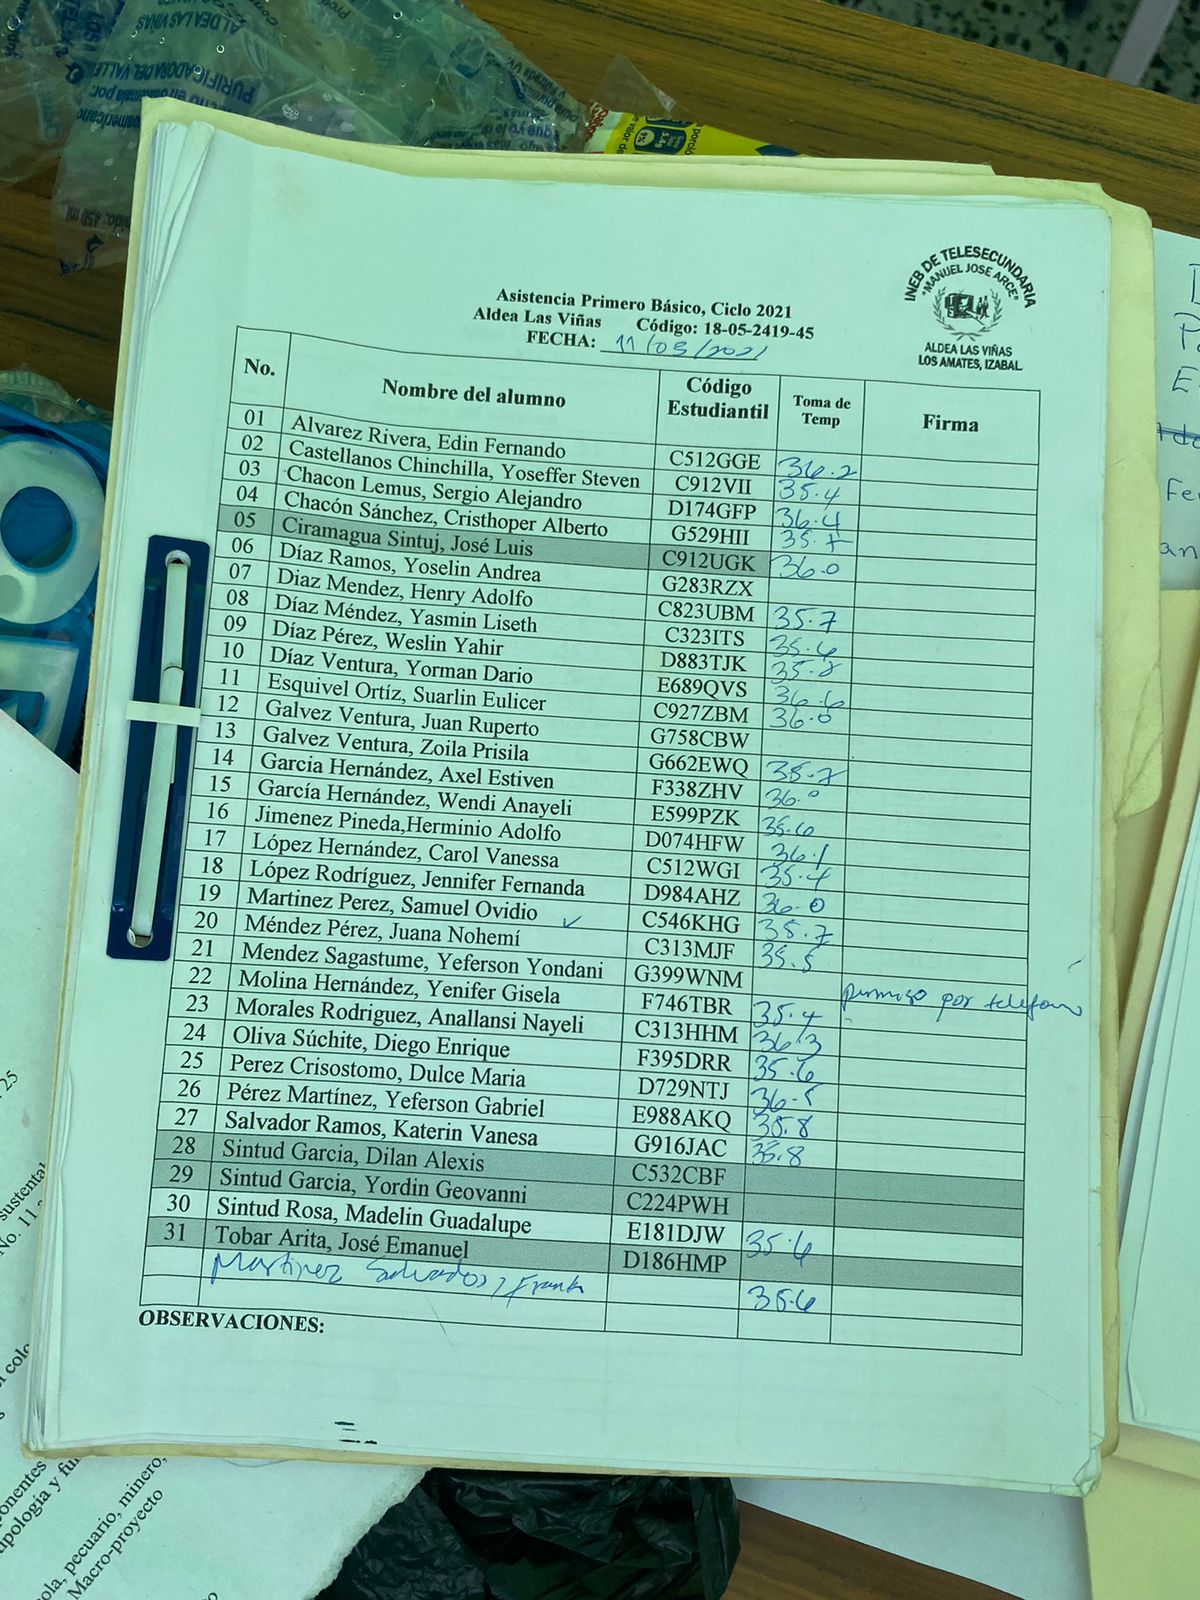 ALDEA LAS VIÑAS
PURIFICADORA DEL VALLE
INEB DE TELESECUNDARIA
"MANUEL JOSE ARCE"
ALDEA LAS VIÑAS
LOS AMATES, IZABAL
Asistencia Primero Básico, Ciclo 2021
Aldea Las Viñas Código: 18-05-2419-45
FECHA: 11/03/2021
No. Nombre del alumno Código Estudiantil Toma de Temp Firma
01 Alvarez Rivera, Edin Fernando C512GGE 36.2
02 Castellanos Chinchilla, Yoseffer Steven C912VII 35.4
03 Chacon Lemus, Sergio Alejandro D174GFP 36.4
04 Chacón Sánchez, Cristhoper Alberto G529HII 35.7
05 Ciramagua Sintuj, José Luis C912UGK 36.0
06 Díaz Ramos, Yoselin Andrea G283RZX
07 Diaz Mendez, Henry Adolfo C823UBM 35.7
08 Díaz Méndez, Yasmin Liseth C323ITS 35.6
09 Díaz Pérez, Weslin Yahir D883TJK 35.8
10 Díaz Ventura, Yorman Dario E689QVS 36.6
11 Esquivel Ortíz, Suarlin Eulicer C927ZBM 36.0
12 Galvez Ventura, Juan Ruperto G758CBW
13 Galvez Ventura, Zoila Prisila G662EWQ 35.7
14 Garcia Hernández, Axel Estiven F338ZHV 36.0
15 García Hernández, Wendi Anayeli E599PZK 35.6
16 Jimenez Pineda,Herminio Adolfo D074HFW 36.1
17 López Hernández, Carol Vanessa C512WGI 35.4
18 López Rodríguez, Jennifer Fernanda D984AHZ 36.0
19 Martinez Perez, Samuel Ovidio ✓ C546KHG 35.7
20 Méndez Pérez, Juana Nohemí C313MJF 35.5
21 Mendez Sagastume, Yeferson Yondani G399WNM permiso por telefono
22 Molina Hernández, Yenifer Gisela F746TBR 35.4
23 Morales Rodriguez, Anallansi Nayeli C313HHM 36.3
24 Oliva Súchite, Diego Enrique F395DRR 35.6
25 Perez Crisostomo, Dulce Maria D729NTJ 36.5
26 Pérez Martínez, Yeferson Gabriel E988AKQ 35.8
27 Salvador Ramos, Katerin Vanesa G916JAC 35.8
28 Sintud Garcia, Dilan Alexis C532CBF
29 Sintud Garcia, Yordin Geovanni C224PWH
30 Sintud Rosa, Madelin Guadalupe E181DJW 35.6
31 Tobar Arita, José Emanuel D186HMP
Martinez Salvador, Frank 35.6
OBSERVACIONES:
pecuario, minero,
Macro-proyecto